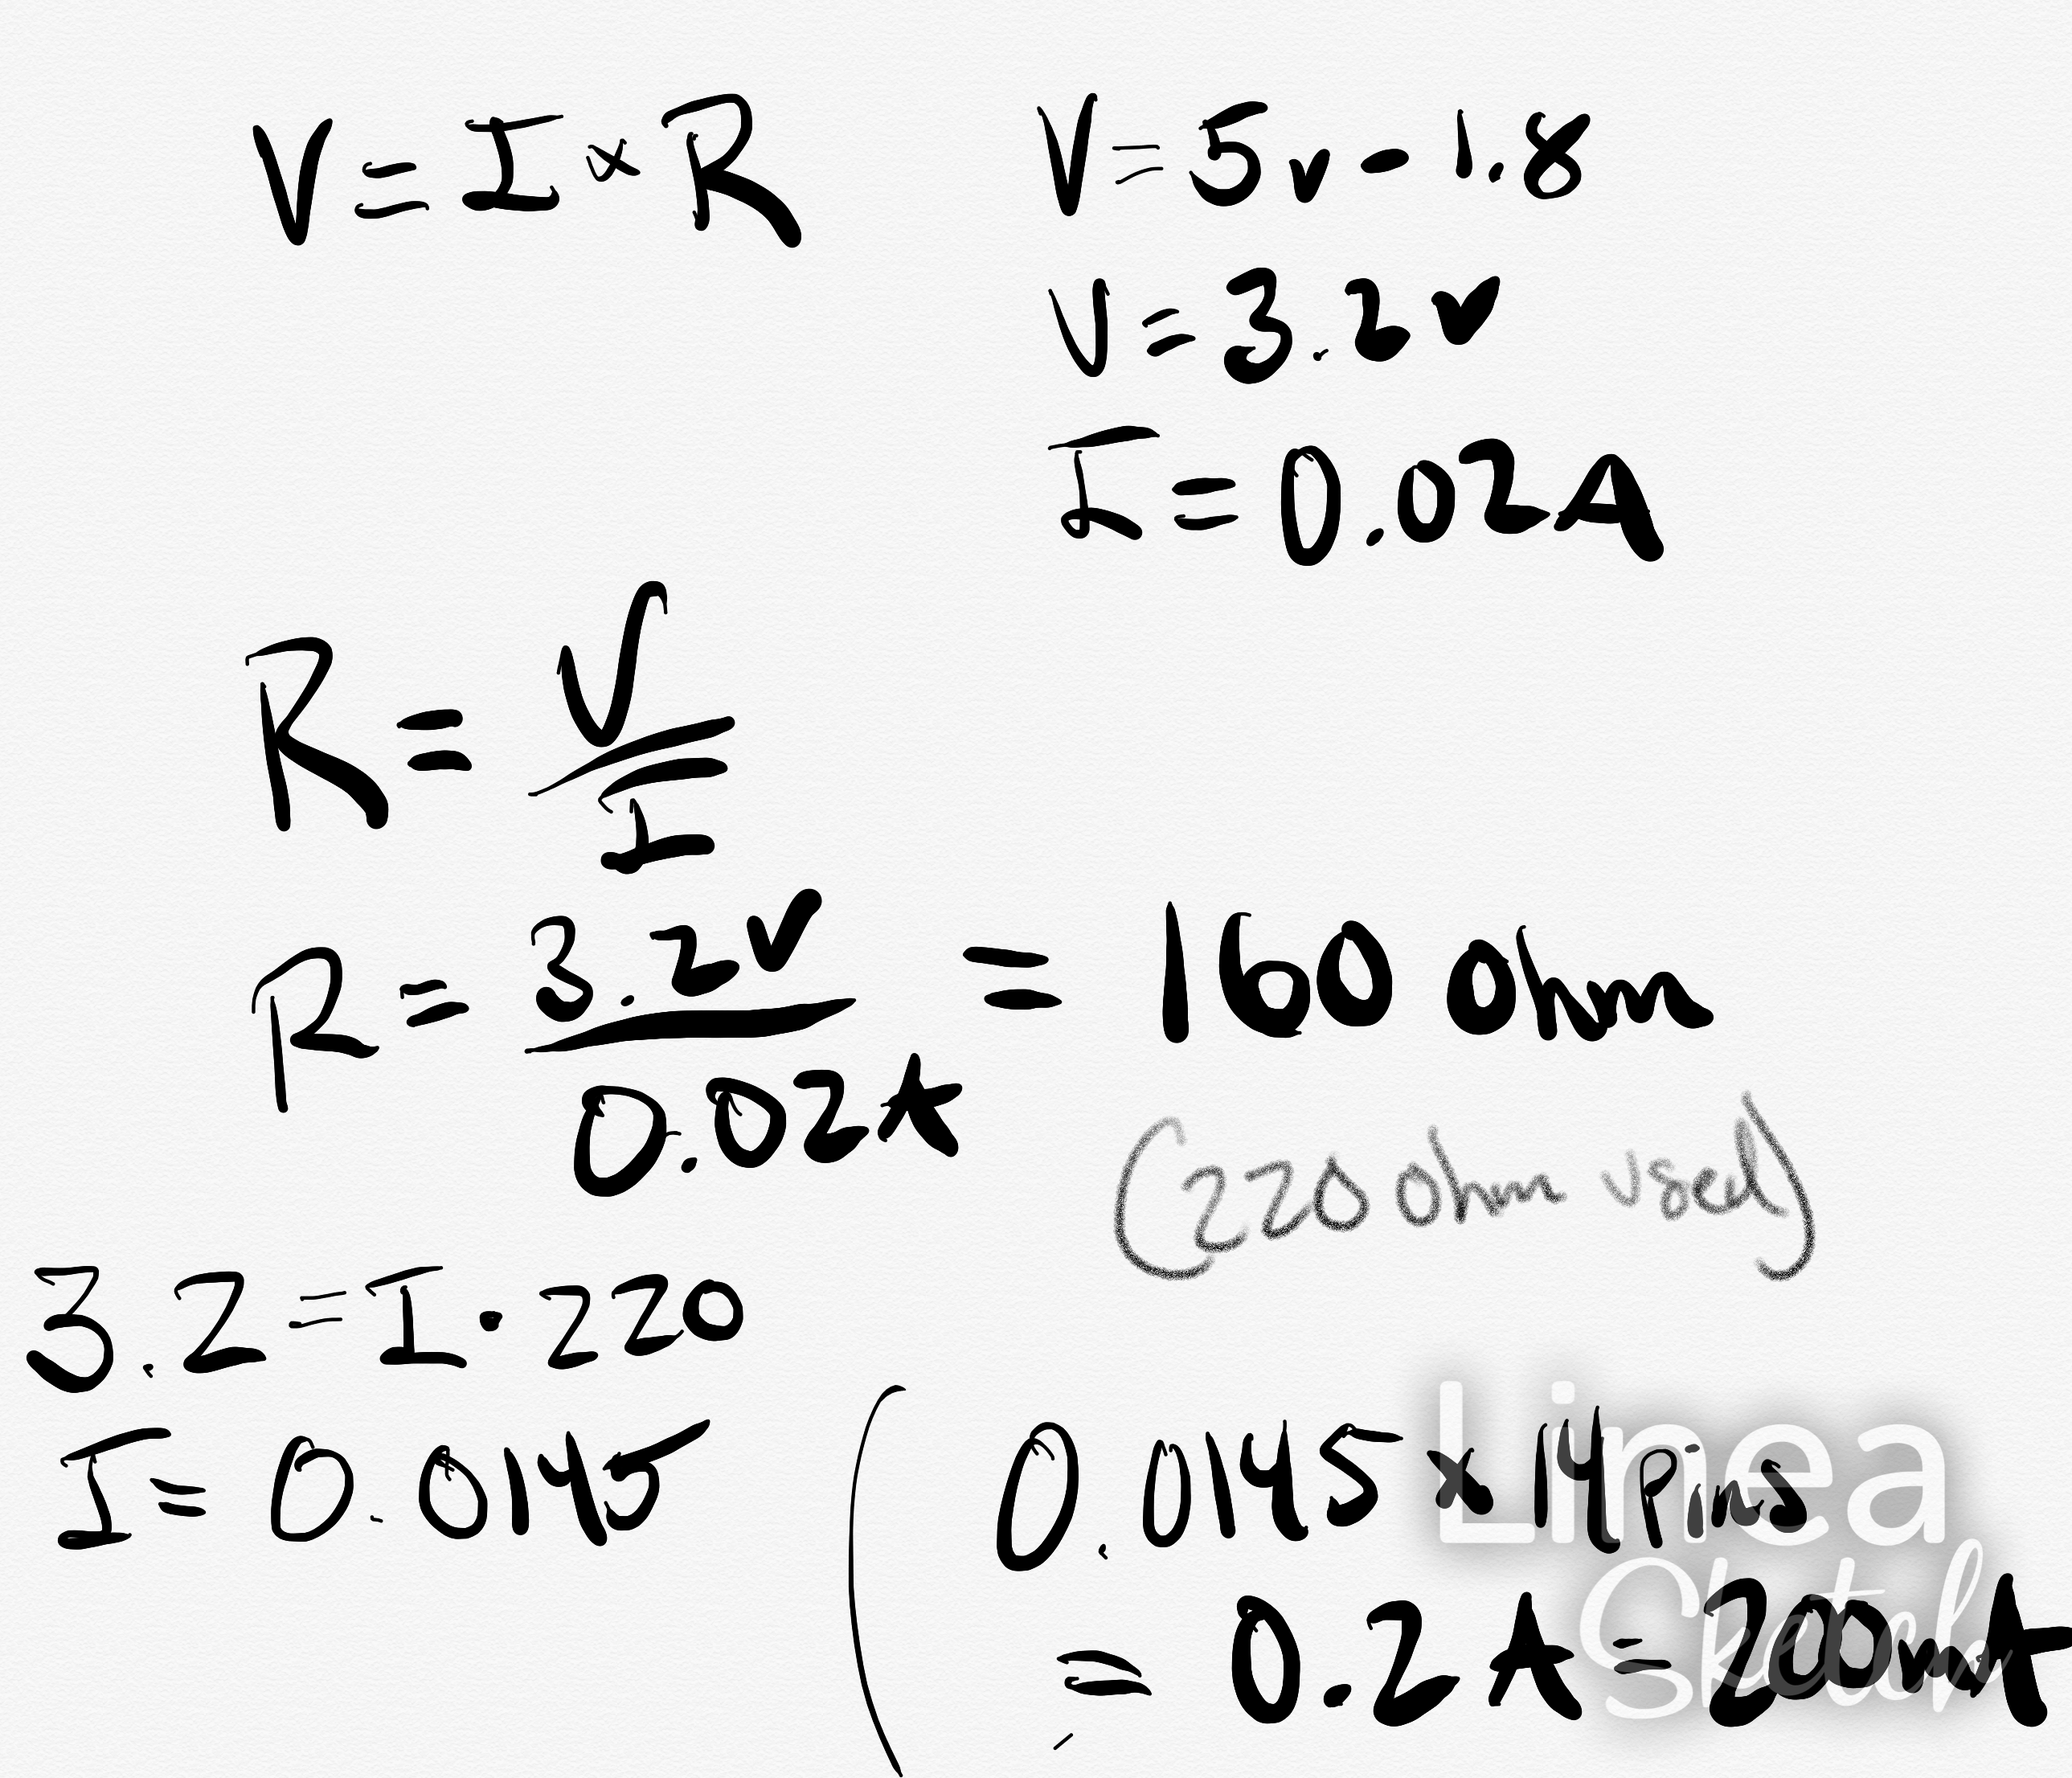 V = I × R
V = 5v - 1.8
V = 3.2v
I = 0.02A
R = V/I
R = 3.2v/0.02A = 160 ohm
(220 ohm used)
3.2 = I · 220
I = 0.0145
( 0.0145 x 14 pins
= 0.2 A = 200mA
Linea
Sketch